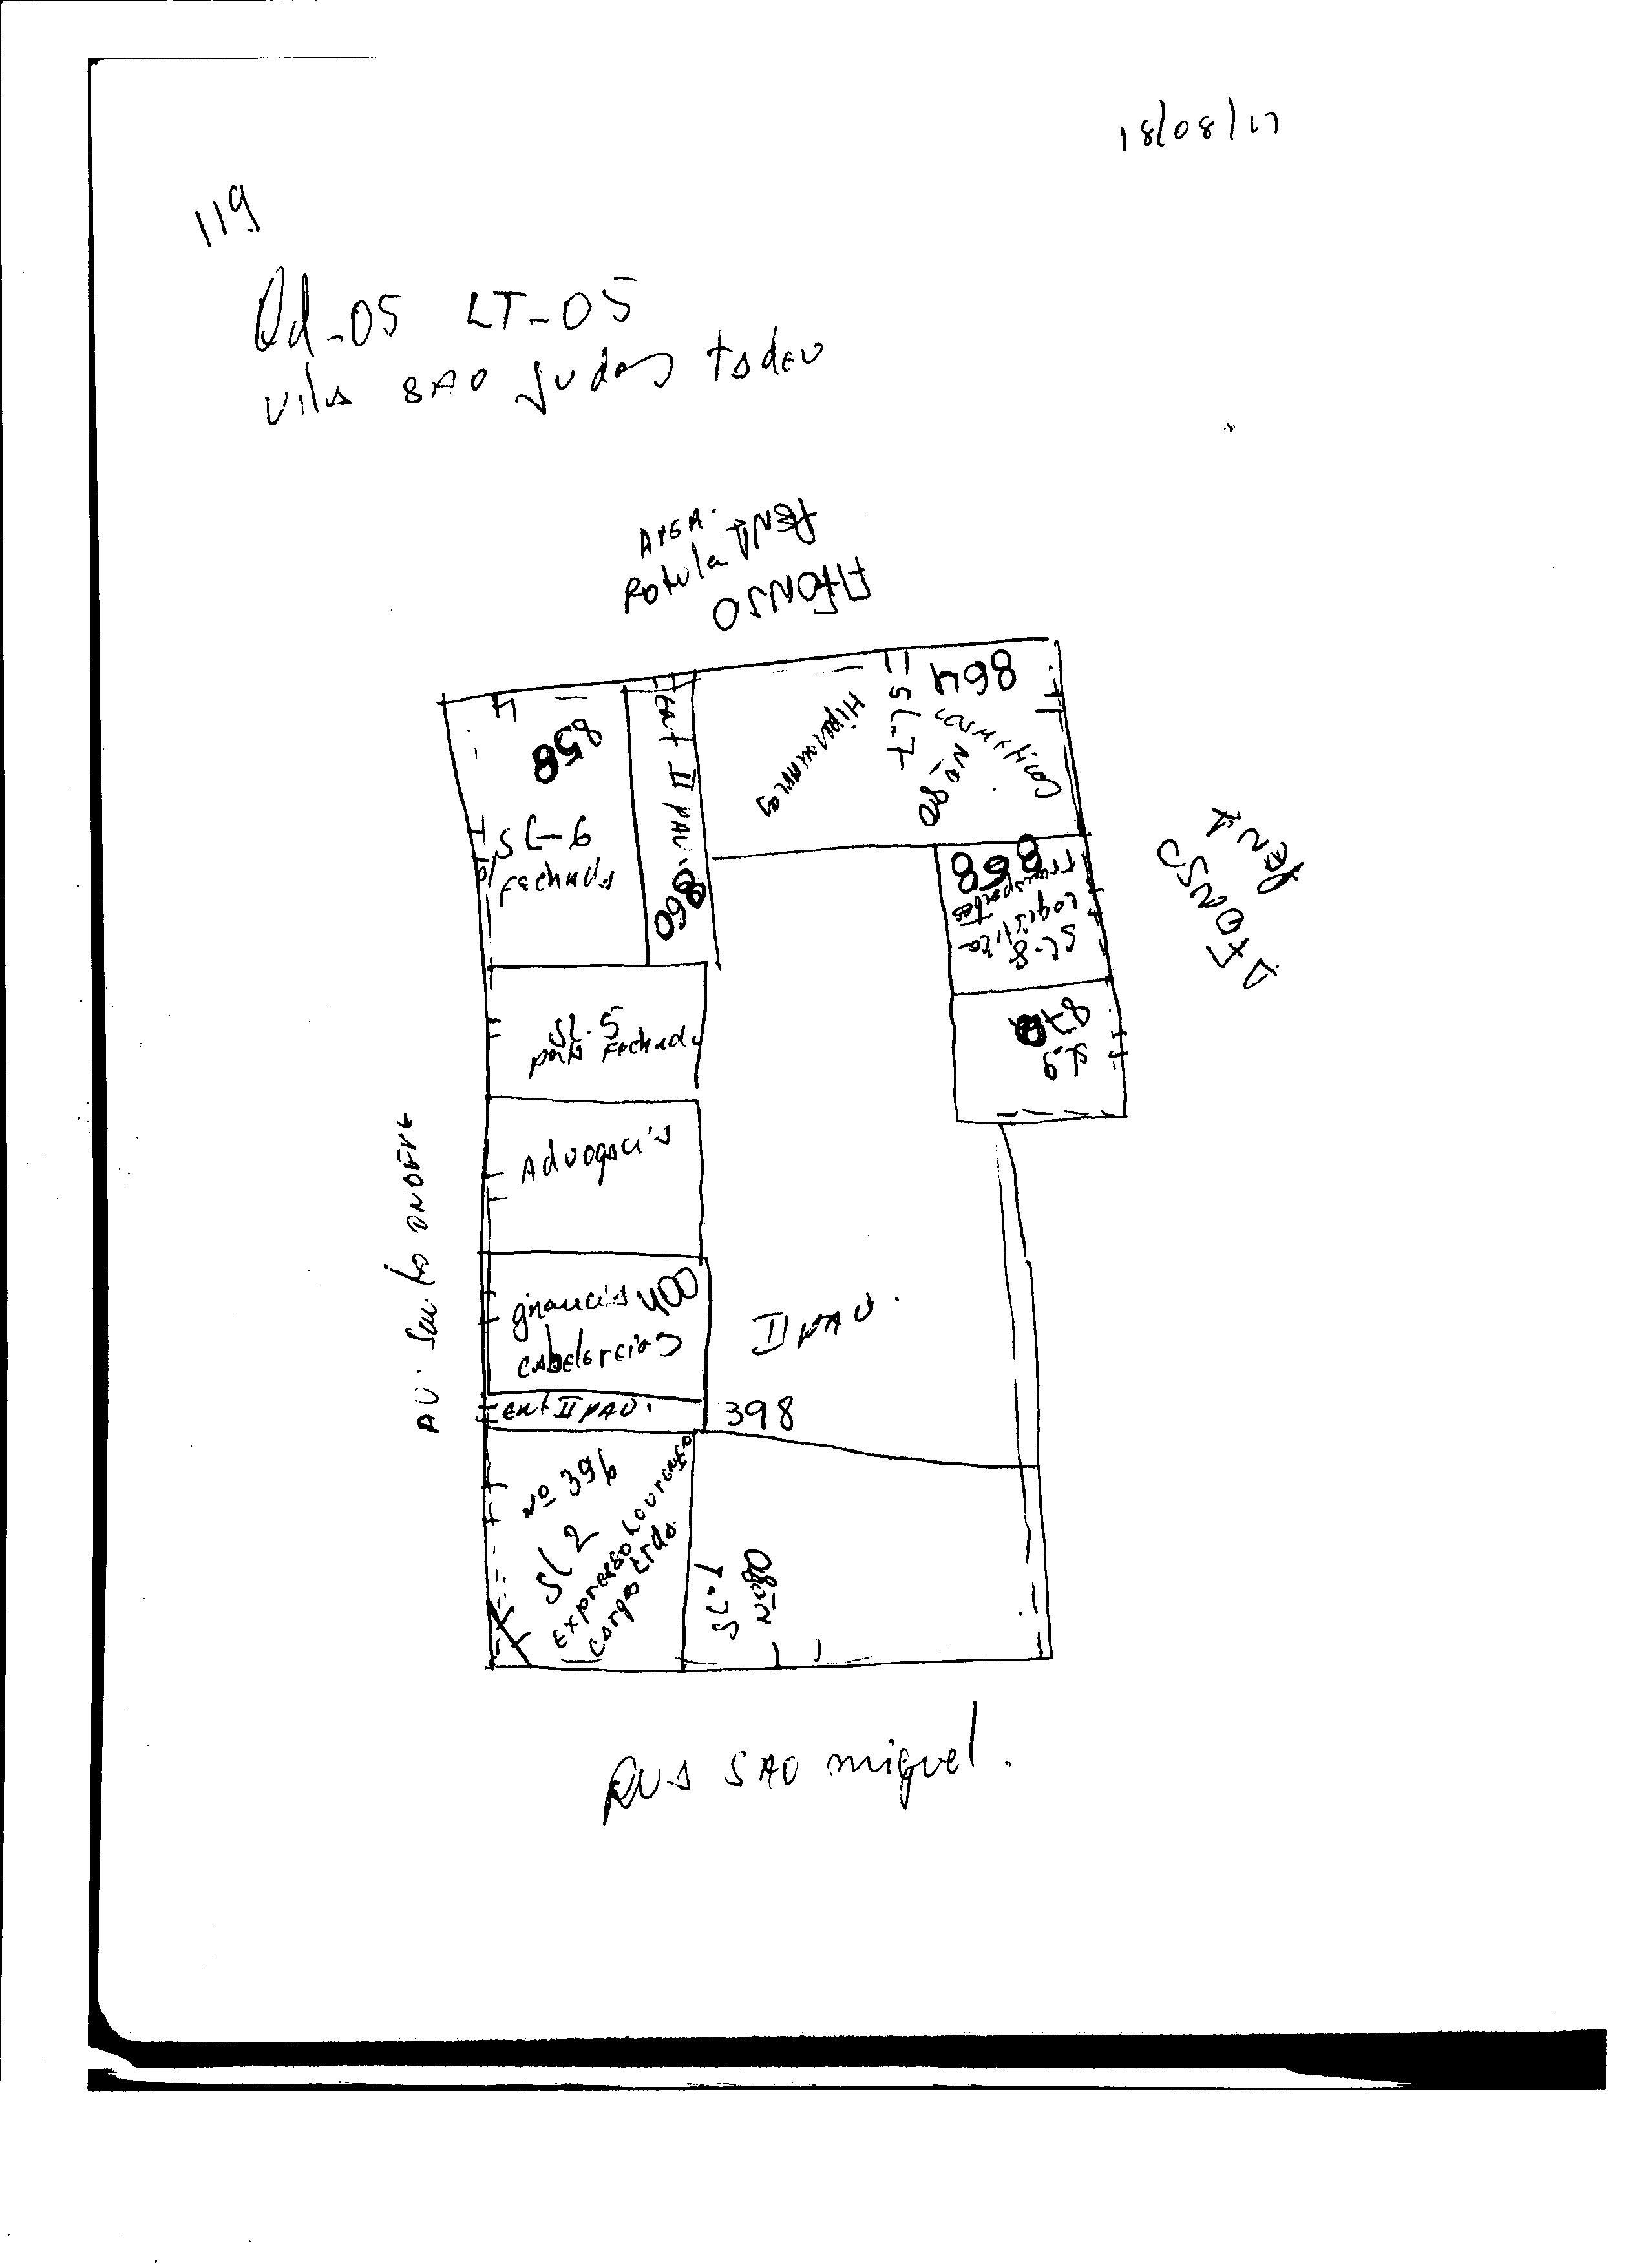 18/08/17
119
Qd-05 LT-05
vila SAO judas tadeu
AREA.
Rotula
AFONSO
PENA
858
SL-6
Fechada
ENT II PAV.
860
864
SL-7
Nº: 80
Cosmeticos
868
Transportes
Logistica
SL-8
AFONSO
PENA
SL-9
SL-5
porta Fechada
Advogacia
400
cabelereiros
ent II PAV.
398
II PAV.
Nº 396
SL 2
Expresso Lourenço
Cargas Ltda.
SL-1
AV. Santo ONOFRE
RUA SAO miguel.